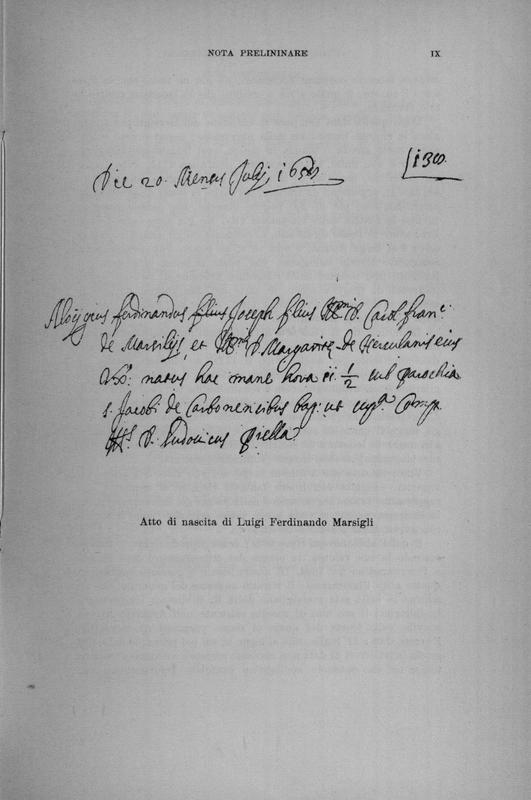 NOTA PRELININARE IX
Die 20. Mensis Julij 1658
Aloysius ferdinandus filius Joseph filius D. Carol franc.
de Marsilijs, et D. Margarite de Herculanis eius
Vx: natus hac mane hora 11 1/2 sub parochia
s. Jacobi de Carbonensibus bap: ut sup.a
D. Ludovicus Piella
Atto di nascita di Luigi Ferdinando Marsigli